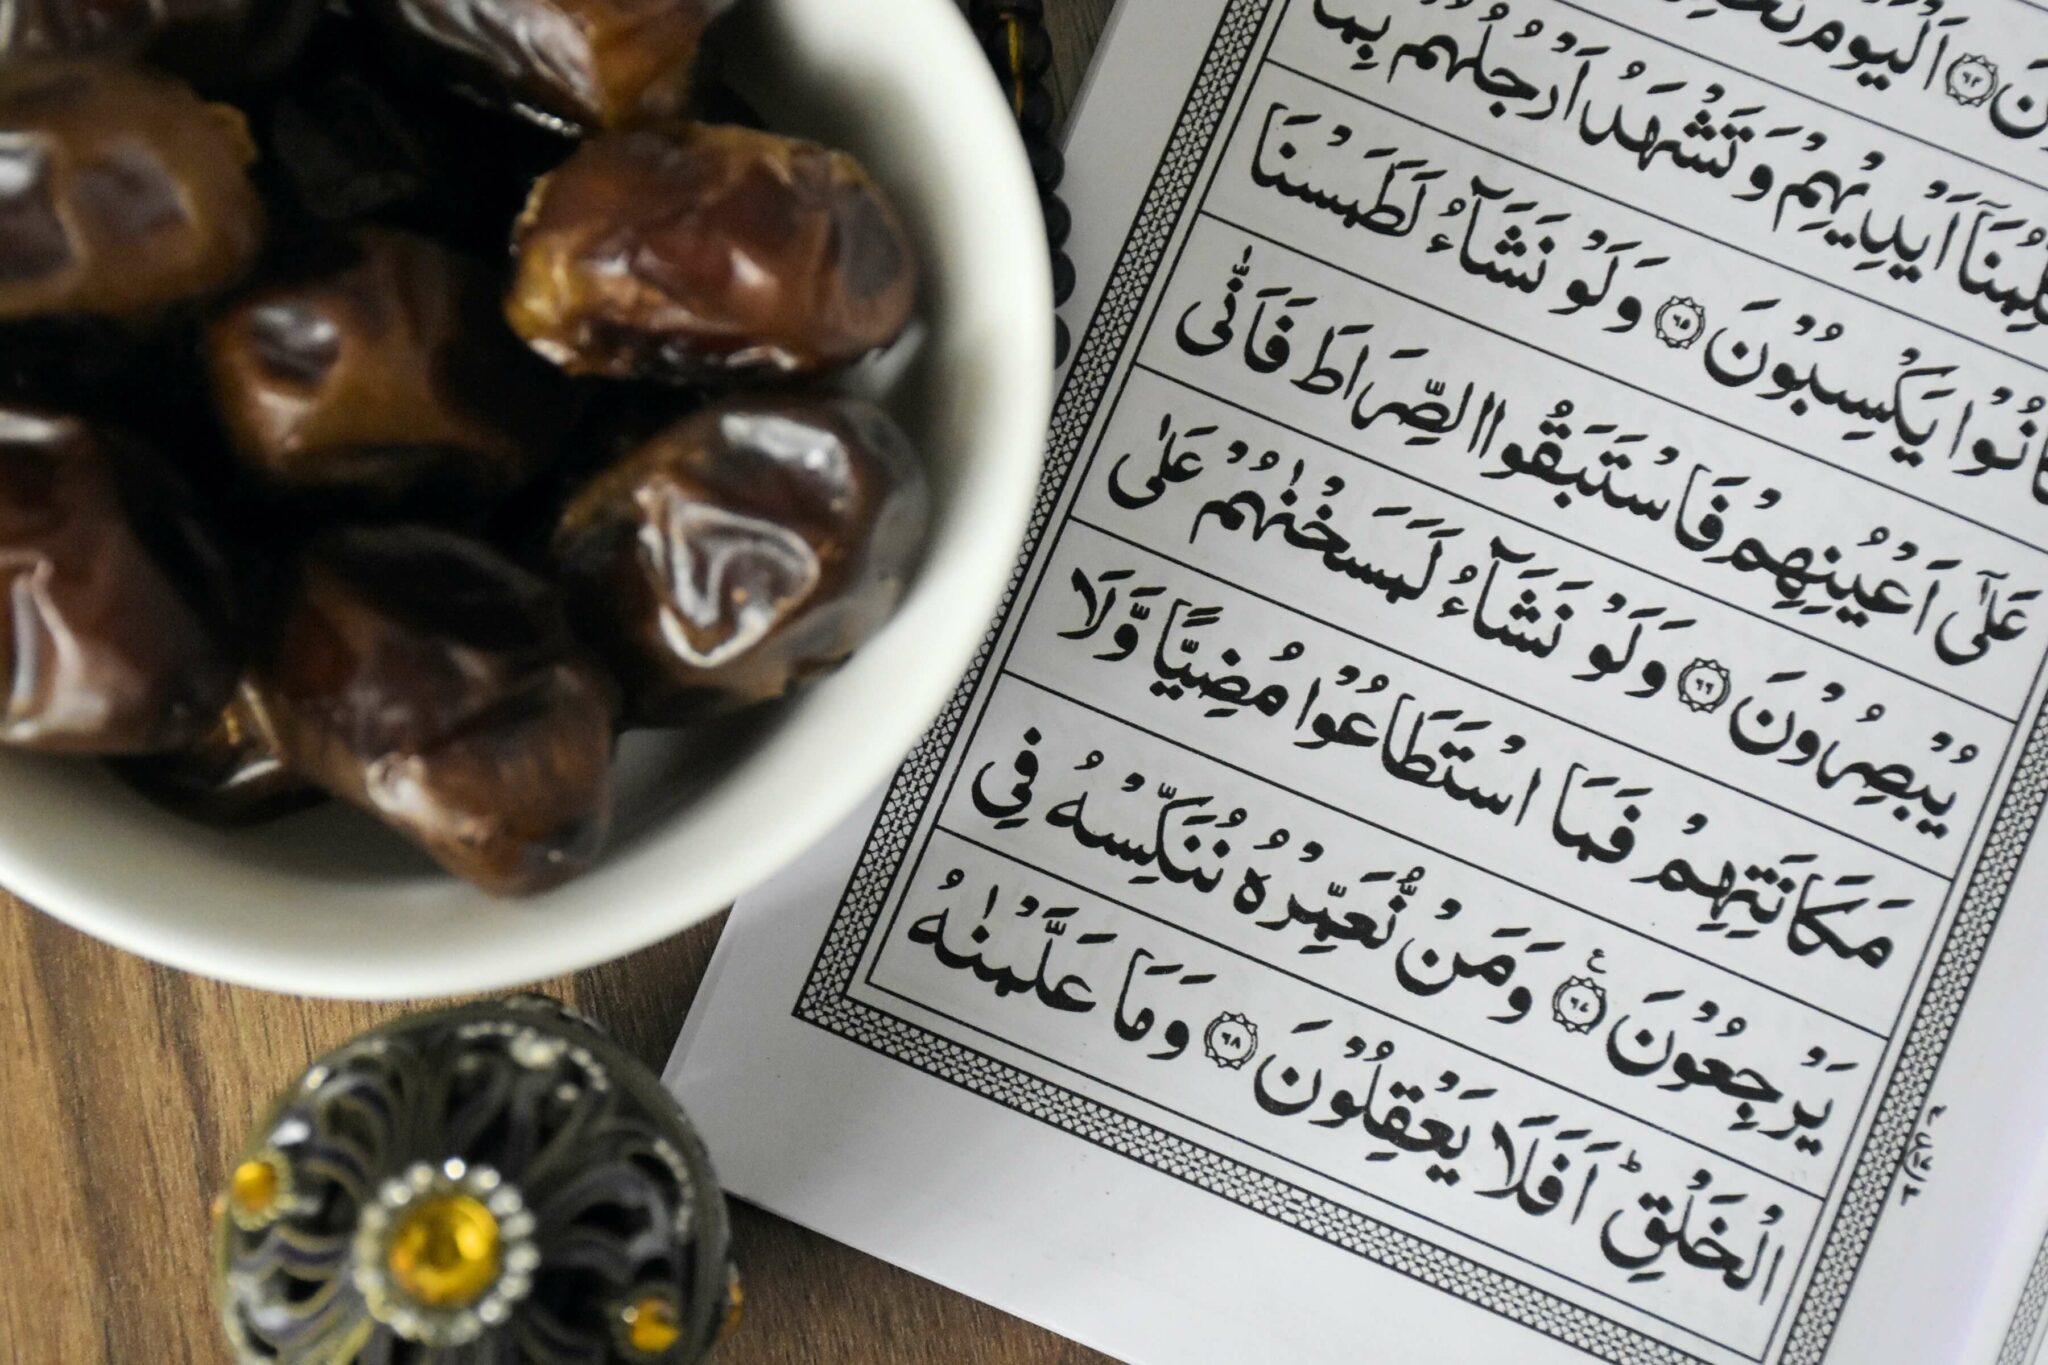 ۙ﴿٦٤﴾ اَلْيَوْمَ
اَيْدِيْهِمْ وَتَشْهَدُ اَرْجُلُهُمْ بِمَا
كَانُوْا يَكْسِبُوْنَ ﴿٦٥﴾ وَلَوْ نَشَآءُ لَطَمَسْنَا
عَلٰٓى اَعْيُنِهِمْ فَاسْتَبَقُوا الصِّرَاطَ فَاَنّٰى
يُبْصِرُوْنَ ﴿٦٦﴾ وَلَوْ نَشَآءُ لَمَسَخْنٰهُمْ عَلٰى
مَكَانَتِهِمْ فَمَا اسْتَطَاعُوْا مُضِيًّا وَّلَا
يَرْجِعُوْنَ ﴿٦٧﴾ع وَمَنْ نُّعَمِّرْهُ نُنَكِّسْهُ فِي
الْخَلْقِ ؕ اَفَلَا يَعْقِلُوْنَ ﴿٦٨﴾ وَمَا عَلَّمْنٰهُ